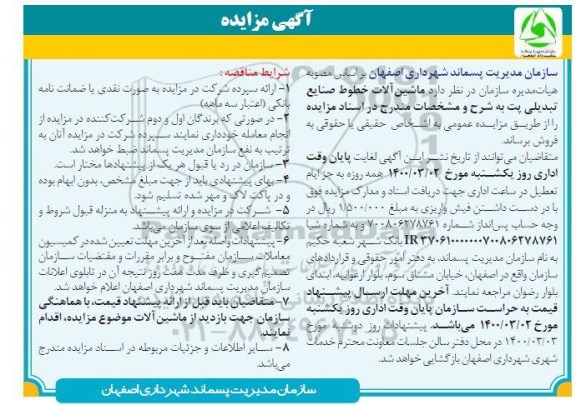 آگهی مزایده
سازمان مدیریت پسماند شهرداری اصفهان بر اساس مصوبه
هیات‌مدیره سازمان در نظر دارد ماشین آلات خطوط صنایع
تبدیلی پت به شرح و مشخصات مندرج در اسناد مزایده
را از طریق مزایده عمومی به اشخاص حقیقی یا حقوقی به
فروش برساند.
متقاضیان می‌توانند از تاریخ نشر این آگهی لغایت پایان وقت
اداری روز یکشنبه مورخ ۱۴۰۰/۰۳/۰۲ همه روزه به جز ایام
تعطیل در ساعت اداری جهت دریافت اسناد و مدارک مزایده فوق
با در دست داشتن فیش واریزی به مبلغ ۱/۵۰۰/۰۰۰ ریال در
وجه حساب پس‌انداز شماره ۷۰۰۸۰۶۲۷۸۷۶۱ و به شماره شبا
بانک شهر شعبه حکیم
به نام سازمان مدیریت پسماند، به دفتر امور حقوقی و قراردادهای
سازمان واقع در اصفهان، خیابان مشتاق سوم، بلوار ارغوانیه، ابتدای
بلوار رضوان مراجعه نمایند. آخرین مهلت ارسال پیشنهاد
قیمت به حراست سازمان پایان وقت اداری روز یکشنبه
مورخ ۱۴۰۰/۰۳/۰۲ می‌باشد. پیشنهادات روز دوشنبه مورخ
۱۴۰۰/۰۳/۰۳ در محل دفتر سالن جلسات معاونت محترم خدمات
شهری شهرداری اصفهان بازگشایی خواهد شد.
شرایط مناقصه:
۱- ارائه سپرده شرکت در مزایده به صورت نقدی یا ضمانت نامه
بانکی (اعتبار سه ماهه)
۲- در صورتی که برندگان اول و دوم شرکت‌کننده در مزایده از
انجام معامله خودداری نمایند سپرده شرکت در مزایده آنان به
ترتیب به نفع سازمان مدیریت پسماند ضبط خواهد شد.
۳- سازمان در رد یا قبول هر یک از پیشنهادها مختار است.
۴- بهای پیشنهادی باید از جهت مبلغ مشخص، بدون ابهام بوده
و در پاکت لاک و مهر شده تسلیم شود.
۵- شرکت در مزایده و ارائه پیشنهاد به منزله قبول شروط و
تکالیف اعلامی از سوی سازمان می‌باشد.
۶- پیشنهادات واصله بعد از آخرین مهلت تعیین شده در کمیسیون
معاملات سازمان مفتوح و برابر مقررات و مقتضیات سازمان
تصمیم‌گیری و ظرف مدت هفت روز نتیجه آن در تابلوی اعلانات
سازمان مدیریت پسماند شهرداری اصفهان اعلام خواهد شد.
۷- متقاضیان باید قبل از ارائه پیشنهاد قیمت، با هماهنگی
سازمان جهت بازدید از ماشین آلات موضوع مزایده، اقدام
نمایند.
۸- سایر اطلاعات و جزئیات مربوطه در اسناد مزایده مندرج
می‌باشد.
سازمان مدیریت پسماند شهرداری اصفهان